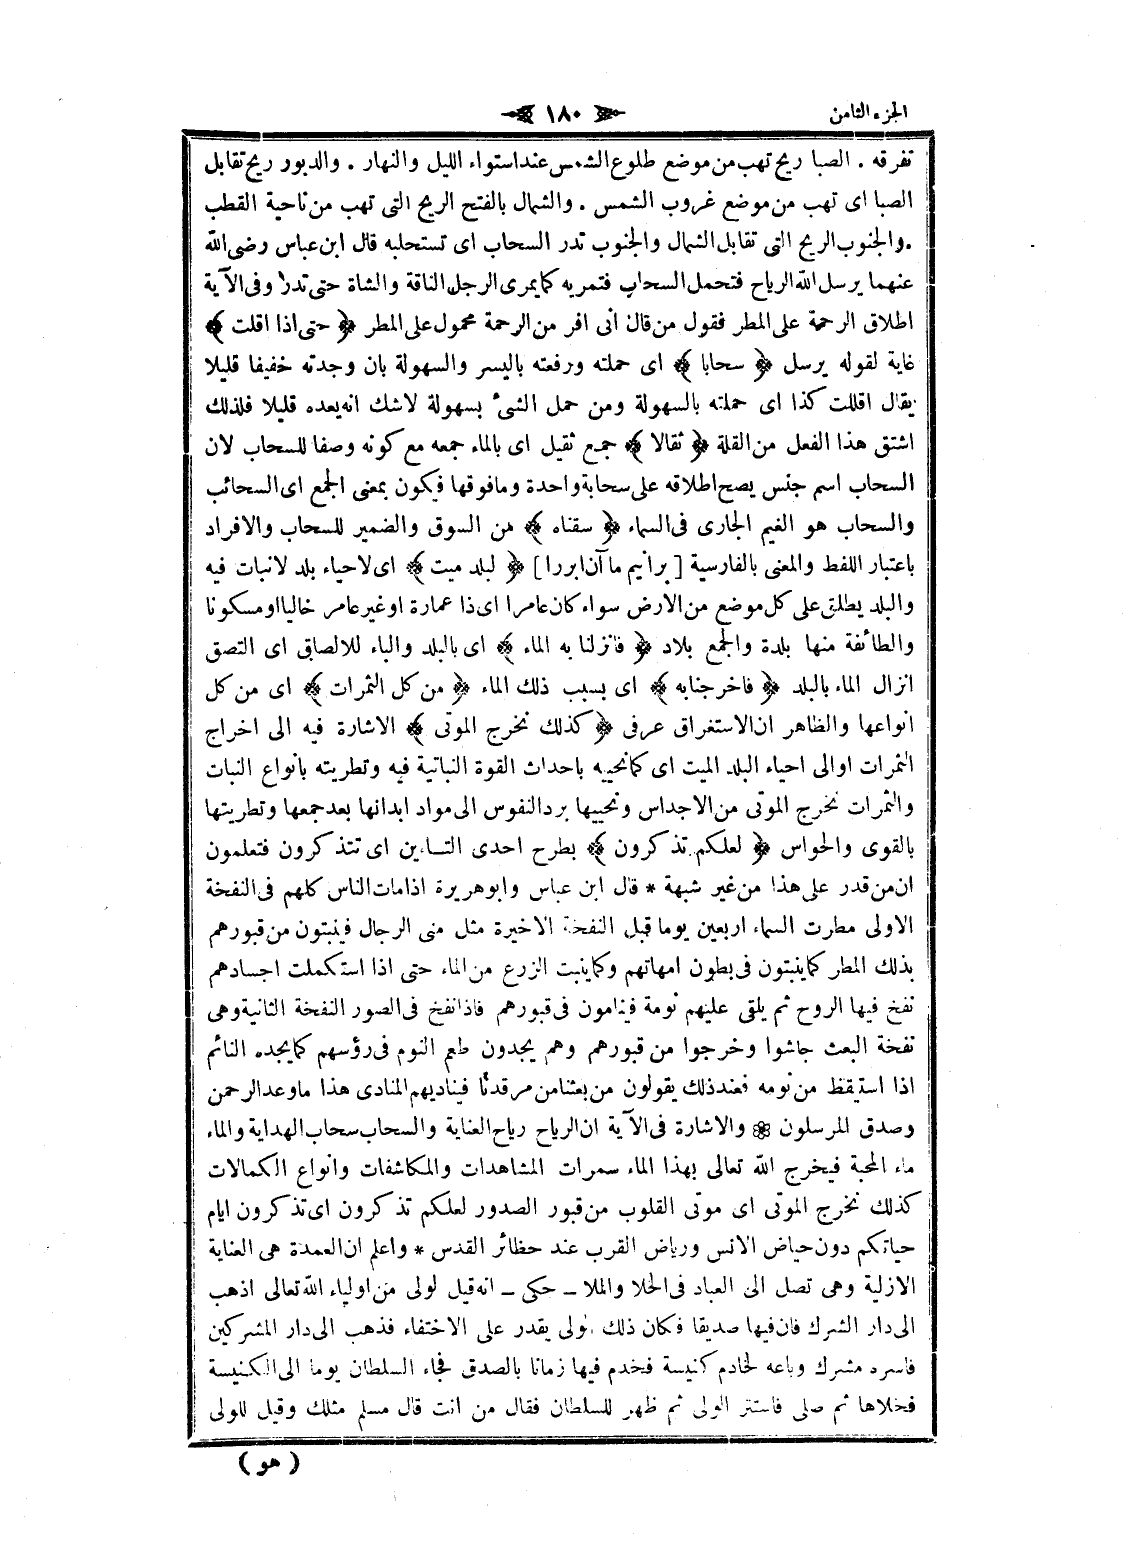 الجزء الثامن
١٨٠
تفرقه . الصبا ريح تهب من موضع طلوع الشمس عند استواء الليل والنهار . والدبور ريح تقابل
الصبا اى تهب من موضع غروب الشمس . والشمال بالفتح الريح التى تهب من ناحية القطب
.والجنوب الريح التى تقابل الشمال والجنوب تدر السحاب اى تستحلبه قال ابن عباس رضى الله
عنهما يرسل الله الرياح فتحمل السحاب فتمريه كما يمرى الرجل الناقة والشاة حتى تدر وفى الآية
اطلاق الرحمة على المطر فقول من قال أنى افر من الرحمة محمول على المطر ﴿ حتى اذا اقلت ﴾
غاية لقوله يرسل ﴿ سحابا ﴾ اى حملته ورفعته باليسر والسهولة بان وجدته خفيفا قليلا
يقال اقللت كذا اى حملته بالسهولة ومن حمل الشىء بسهولة لاشك انه يعده قليلا فلذلك
اشتق هذا الفعل من القلة ﴿ ثقالا ﴾ جمع ثقيل اى بالماء جمعه مع كونه وصفا للسحاب لان
السحاب اسم جنس يصح اطلاقه على سحابة واحدة ومافوقها فيكون بمعنى الجمع اى السحائب
والسحاب هو الغيم الجارى فى السماء ﴿ سقناه ﴾ من السوق والضمير للسحاب والافراد
باعتبار اللفط والمعنى بالفارسية [ برانيم ما آن ابررا ] ﴿ لبلد ميت ﴾ اى لاحياء بلد لانبات فيه
والبلد يطلق على كل موضع من الارض سواء كان عامرا اى ذا عمارة او غير عامر خاليا او مسكونا
والطائفة منها بلدة والجمع بلاد ﴿ فانزلنا به الماء ﴾ اى بالبلد والباء للالصاق اى التصق
انزال الماء بالبلد ﴿ فاخرجنا به ﴾ اى بسبب ذلك الماء ﴿ من كل الثمرات ﴾ اى من كل
انواعها والظاهر ان الاستغراق عرفى ﴿ كذلك نخرج الموتى ﴾ الاشارة فيه الى اخراج
الثمرات اوالى احياء البلد الميت اى كما نحييه باحداث القوة النباتية فيه وتطريته بانواع النبات
والثمرات نخرج الموتى من الاجداس ونحييها برد النفوس الى مواد ابدانها بعد جمعها وتطريتها
بالقوى والحواس ﴿ لعلكم تذكرون ﴾ بطرح احدى التاءين اى تتذكرون فتعلمون
ان من قدر على هذا من غير شبهة * قال ابن عباس وابو هريرة اذا مات الناس كلهم فى النفخة
الاولى مطرت السماء اربعين يوما قبل النفخة الاخيرة مثل منى الرجال فينبتون من قبورهم
بذلك المطر كما ينبتون فى بطون امهاتهم وكما ينبت الزرع من الماء حتى اذا استكملت اجسادهم
نفخ فيها الروح ثم يلقى عليهم نومة فينامون فى قبورهم فاذا نفخ فى الصور النفخة الثانية وهى
نفخة البعث جاشوا وخرجوا من قبورهم وهم يجدون طعم النوم فى رؤسهم كما يجده النائم
اذا استيقظ من نومه فعند ذلك يقولون من بعثنا من مرقدنا فيناديهم المنادى هذا ماوعد الرحمن
وصدق المرسلون ❁ والاشارة فى الآية ان الرياح رياح العناية والسحاب سحاب الهداية والماء
ماء المحبة فيخرج الله تعالى بهذا الماء سمرات المشاهدات والمكاشفات وانواع الكمالات
كذلك نخرج الموتى اى موتى القلوب من قبور الصدور لعلكم تذكرون اى تذكرون ايام
حياتكم دون حياض الانس ورياض القرب عند حظائر القدس * واعلم ان العمدة هى العناية
الازلية وهى تصل الى العباد فى الخلا والملا _ حكى _ انه قيل لولى من اولياء الله تعالى اذهب
الى دار الشرك فان فيها صديقا فكان ذلك الولى يقدر على الاختفاء فذهب الى دار المشركين
فاسره مشرك وباعه لخادم كنيسة فخدم فيها زمانا بالصدق فجاء السلطان يوما الى الكنيسة
فخلاها ثم صلى فاستتر الولى ثم ظهر للسلطان فقال من انت قال مسلم مثلك وقيل للولى
( هو )